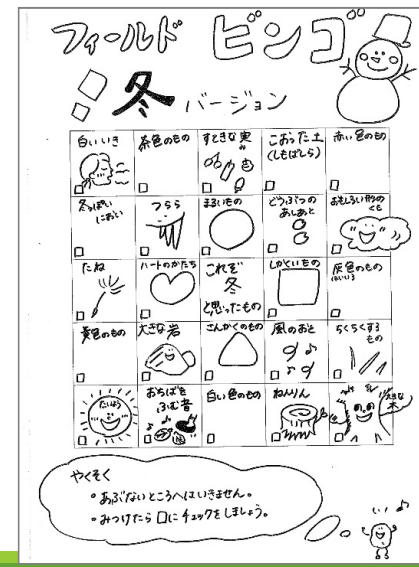 フィールド ビンゴ
冬 バージョン
白いいき
茶色のもの
すてきな実
み
こおった土
(しもばしら)
赤い色のもの
冬っぽい
におい
つらら
まるいもの
どうぶつの
あしあと
おもしろい形の
くも
たね
ハートのかたち
これぞ
冬
と思ったもの
しかくいもの
灰色のもの
はいいろ
黄色のもの
大きな岩
さんかくのもの
風のおと
ちくちくする
もの
たいよう
おちばを
ふむ音
白い色のもの
ねんりん
大きな
木
やくそく
・あぶないところへはいきません。
・みつけたら□にチェックをしましょう。